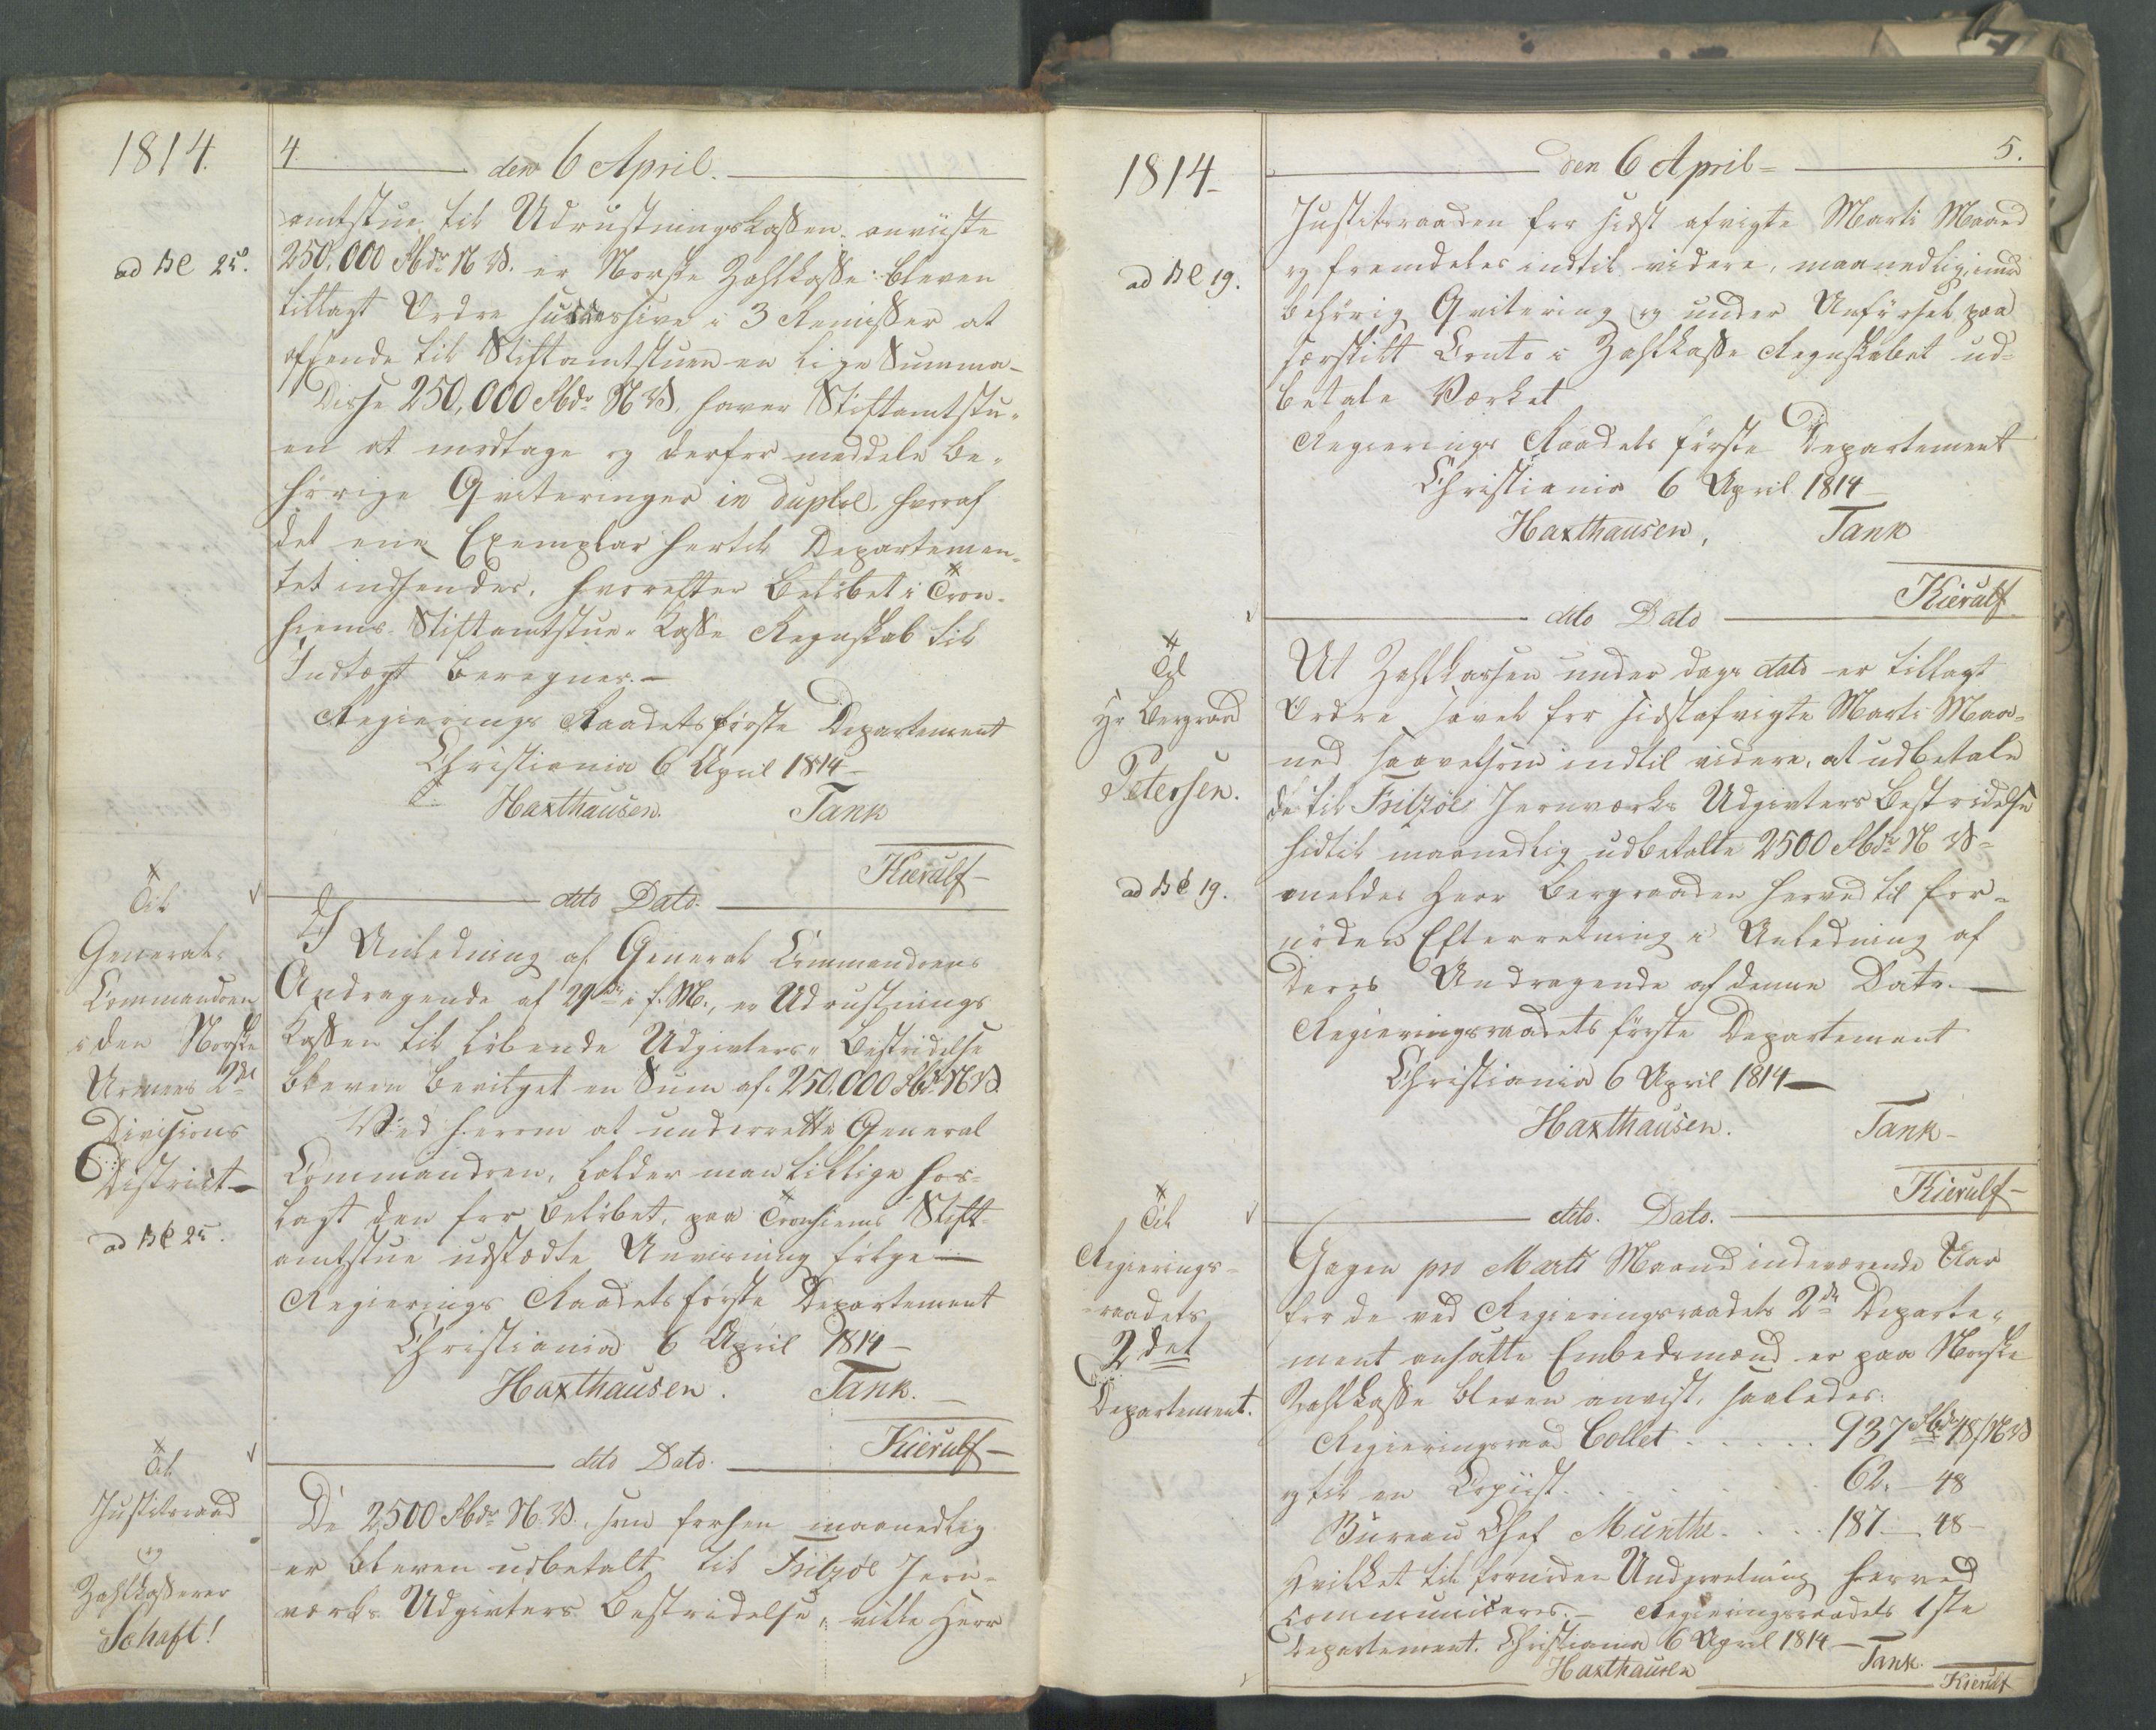 1814.
4.
den 6 April.
amtstue til Udrustningskassen anviiste
ad № 25.
250,000 Rbdr N.V. er Norske Zahlkasse bleven
tillagt Ordre successive i 3 Remisser at
afsende til Stiftamtstuen en lige Summa
Disse 250,000 Rbdr N.V. haver Stiftamtstu-
en at modtage og derfor meddele be-
hörige Qviteringer in duplo, hvoraf
det ene Exemplar hertil Departemen-
tet indsendes, hvorefter Belöbet i Tron-
hiems Stiftamtstue-Kasse Regnskab til
Indtægt beregnes.—
Regierings Raadets förste Departement
Christiania 6 April 1814—
Haxthausen. Tank
Kierulf—
dito Dato.
Til
General-
Commandoen
i den Norske
Armees 2de
Divisions
District—
ad № 25.
I Anledning af General Commandoens
Andragende af 29de i f. M., er Udrustnings
Kassen til löbende Udgivters Bestridelse
bleven bevilget en Sum af 250,000 Rbdr N.V.
Ved herom at underrette General
Commandoen, lader man tillige hos-
lagt den for Belöbet, paa Tronhiems Stift-
amtstue udstædte Anvisning fölge—
Regierings Raadets förste Departement
Christiania 6 April 1814—
Haxthausen. Tank.—
Kierulf—
dito Dato.
Til
Justitsraad
og
Zahlkasserer
Schaft!
De 2500 Rbdr N.V., som forhen maanedlig
er bleven udbetalt til Fritzöe Jern-
værks Udgivters Bestridelse, ville Herr
1814—
den 6 April—
5.
Justitsraaden for sidst afvigte Marti Maaned
ad № 19.
og fremdeles indtil videre, maanedlig, imod
behörig Qvitering og under Anförsel paa
særskilt Conto i Zahlkasse Regnskabet ud-
betale Værket
Regierings Raadets förste Departement
Christiania 6 April 1814—
Haxthausen, Tank
Kierulf
dito Dato
Til
Hr Bergraad
Petersen.
ad № 19.
At Zahlkassen under Dags dato er tillagt
Ordre savel for sidstafvigte Marti Maa-
ned saavelsom indtil videre, at udbetale
de til Fritzöe Jernværks Udgivters Bestridelse
hidtil maanedlig udbetalte 2500 Rbdr N.V—
meldes Herr Bergraaden herved til for-
nöden Efterretning i Anledning af
Deres Andragende af denne Dato.—
Regieringsraadets förste Departement
Christiania 6 April 1814—
Haxthausen. Tank—
Kierulf—
dito. Dato.
Til
Regierings-
raadets
2det
Departement.
Gagen pro Marti Maaned indeværende Aar
for de ved Regieringsraadets 2de Departe-
ment ansatte Embedsmænd er paa Norske
Zahlkasse bleven anvist, saaledes:
Regieringsraad Collet . . . . . 937 Rbdr 48 / N.V
og til en Copiist . . . . . 62. — 48
Bureau Chef Munthe . . . . 187. — 48—
Hvilket til fornöden Underretning herved
communiceres.— Regieringsraadets 1ste
Departement. Christiania 6 April 1814—
Haxthausen Tank.
Kierulf